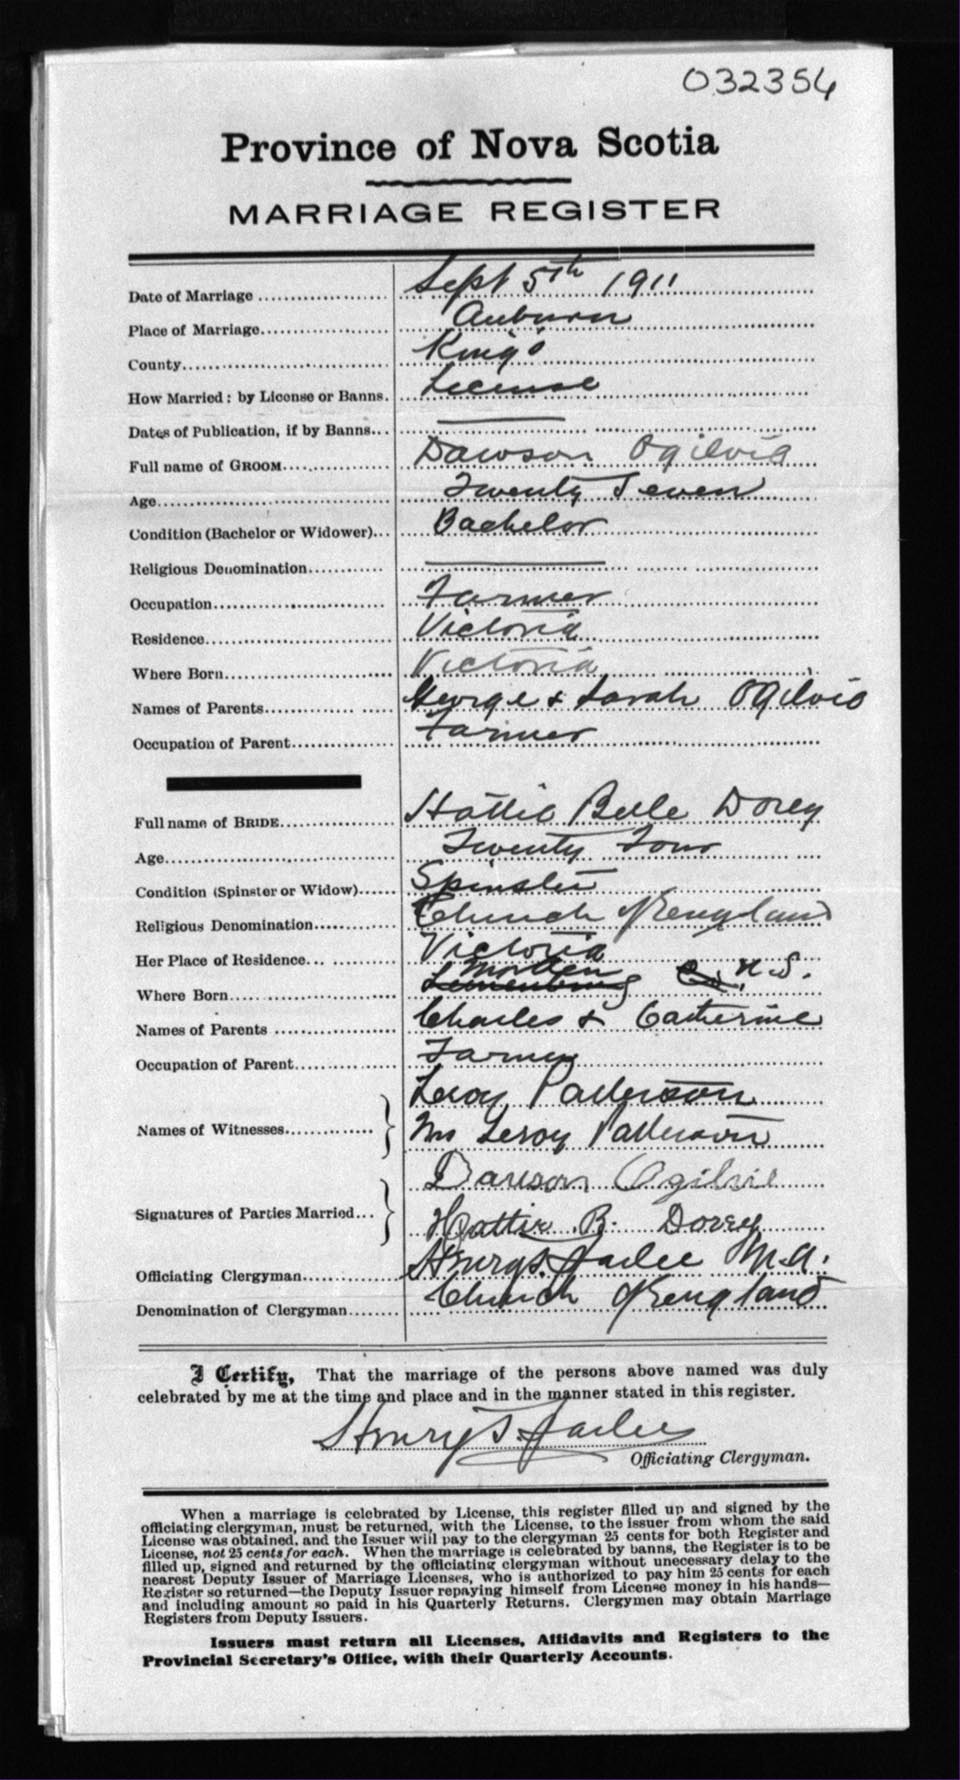 032354
Province of Nova Scotia
MARRIAGE REGISTER
Date of Marriage Sept 5th 1911
Place of Marriage Auburn
County King's
How Married: by License or Banns. License
Dates of Publication, if by Banns
Full name of GROOM Dawson Ogilvie
Age Twenty Seven
Condition (Bachelor or Widower) Bachelor
Religious Denomination
Occupation Farmer
Residence Victoria
Where Born Victoria
Names of Parents George & Sarah Ogilvie
Occupation of Parent Farmer
Full name of BRIDE Hattie Belle Dorey
Age Twenty Four
Condition (Spinster or Widow) Spinster
Religious Denomination Church of England
Her Place of Residence Victoria
Where Born N.S.
Names of Parents Charles & Catherine
Occupation of Parent Farmer
Names of Witnesses Leroy Patterson
Mrs Leroy Patterson
Signatures of Parties Married Dawson Ogilvie
Hattie B. Dorey
Officiating Clergyman Henry M.A.
Denomination of Clergyman Church of England
I Certify, That the marriage of the persons above named was duly
celebrated by me at the time and place and in the manner stated in this register.
Henry
Officiating Clergyman.
When a marriage is celebrated by License, this register filled up and signed by the
officiating clergyman, must be returned, with the License, to the issuer from whom the said
License was obtained, and the Issuer will pay to the clergyman 25 cents for both Register and
License, not 25 cents for each. When the marriage is celebrated by banns, the Register is to be
filled up, signed and returned by the officiating clergyman without unnecessary delay to the
nearest Deputy Issuer of Marriage Licenses, who is authorized to pay him 25 cents for each
Register so returned—the Deputy Issuer repaying himself from License money in his hands—
and including amount so paid in his Quarterly Returns. Clergymen may obtain Marriage
Registers from Deputy Issuers.
Issuers must return all Licenses, Affidavits and Registers to the
Provincial Secretary's Office, with their Quarterly Accounts.